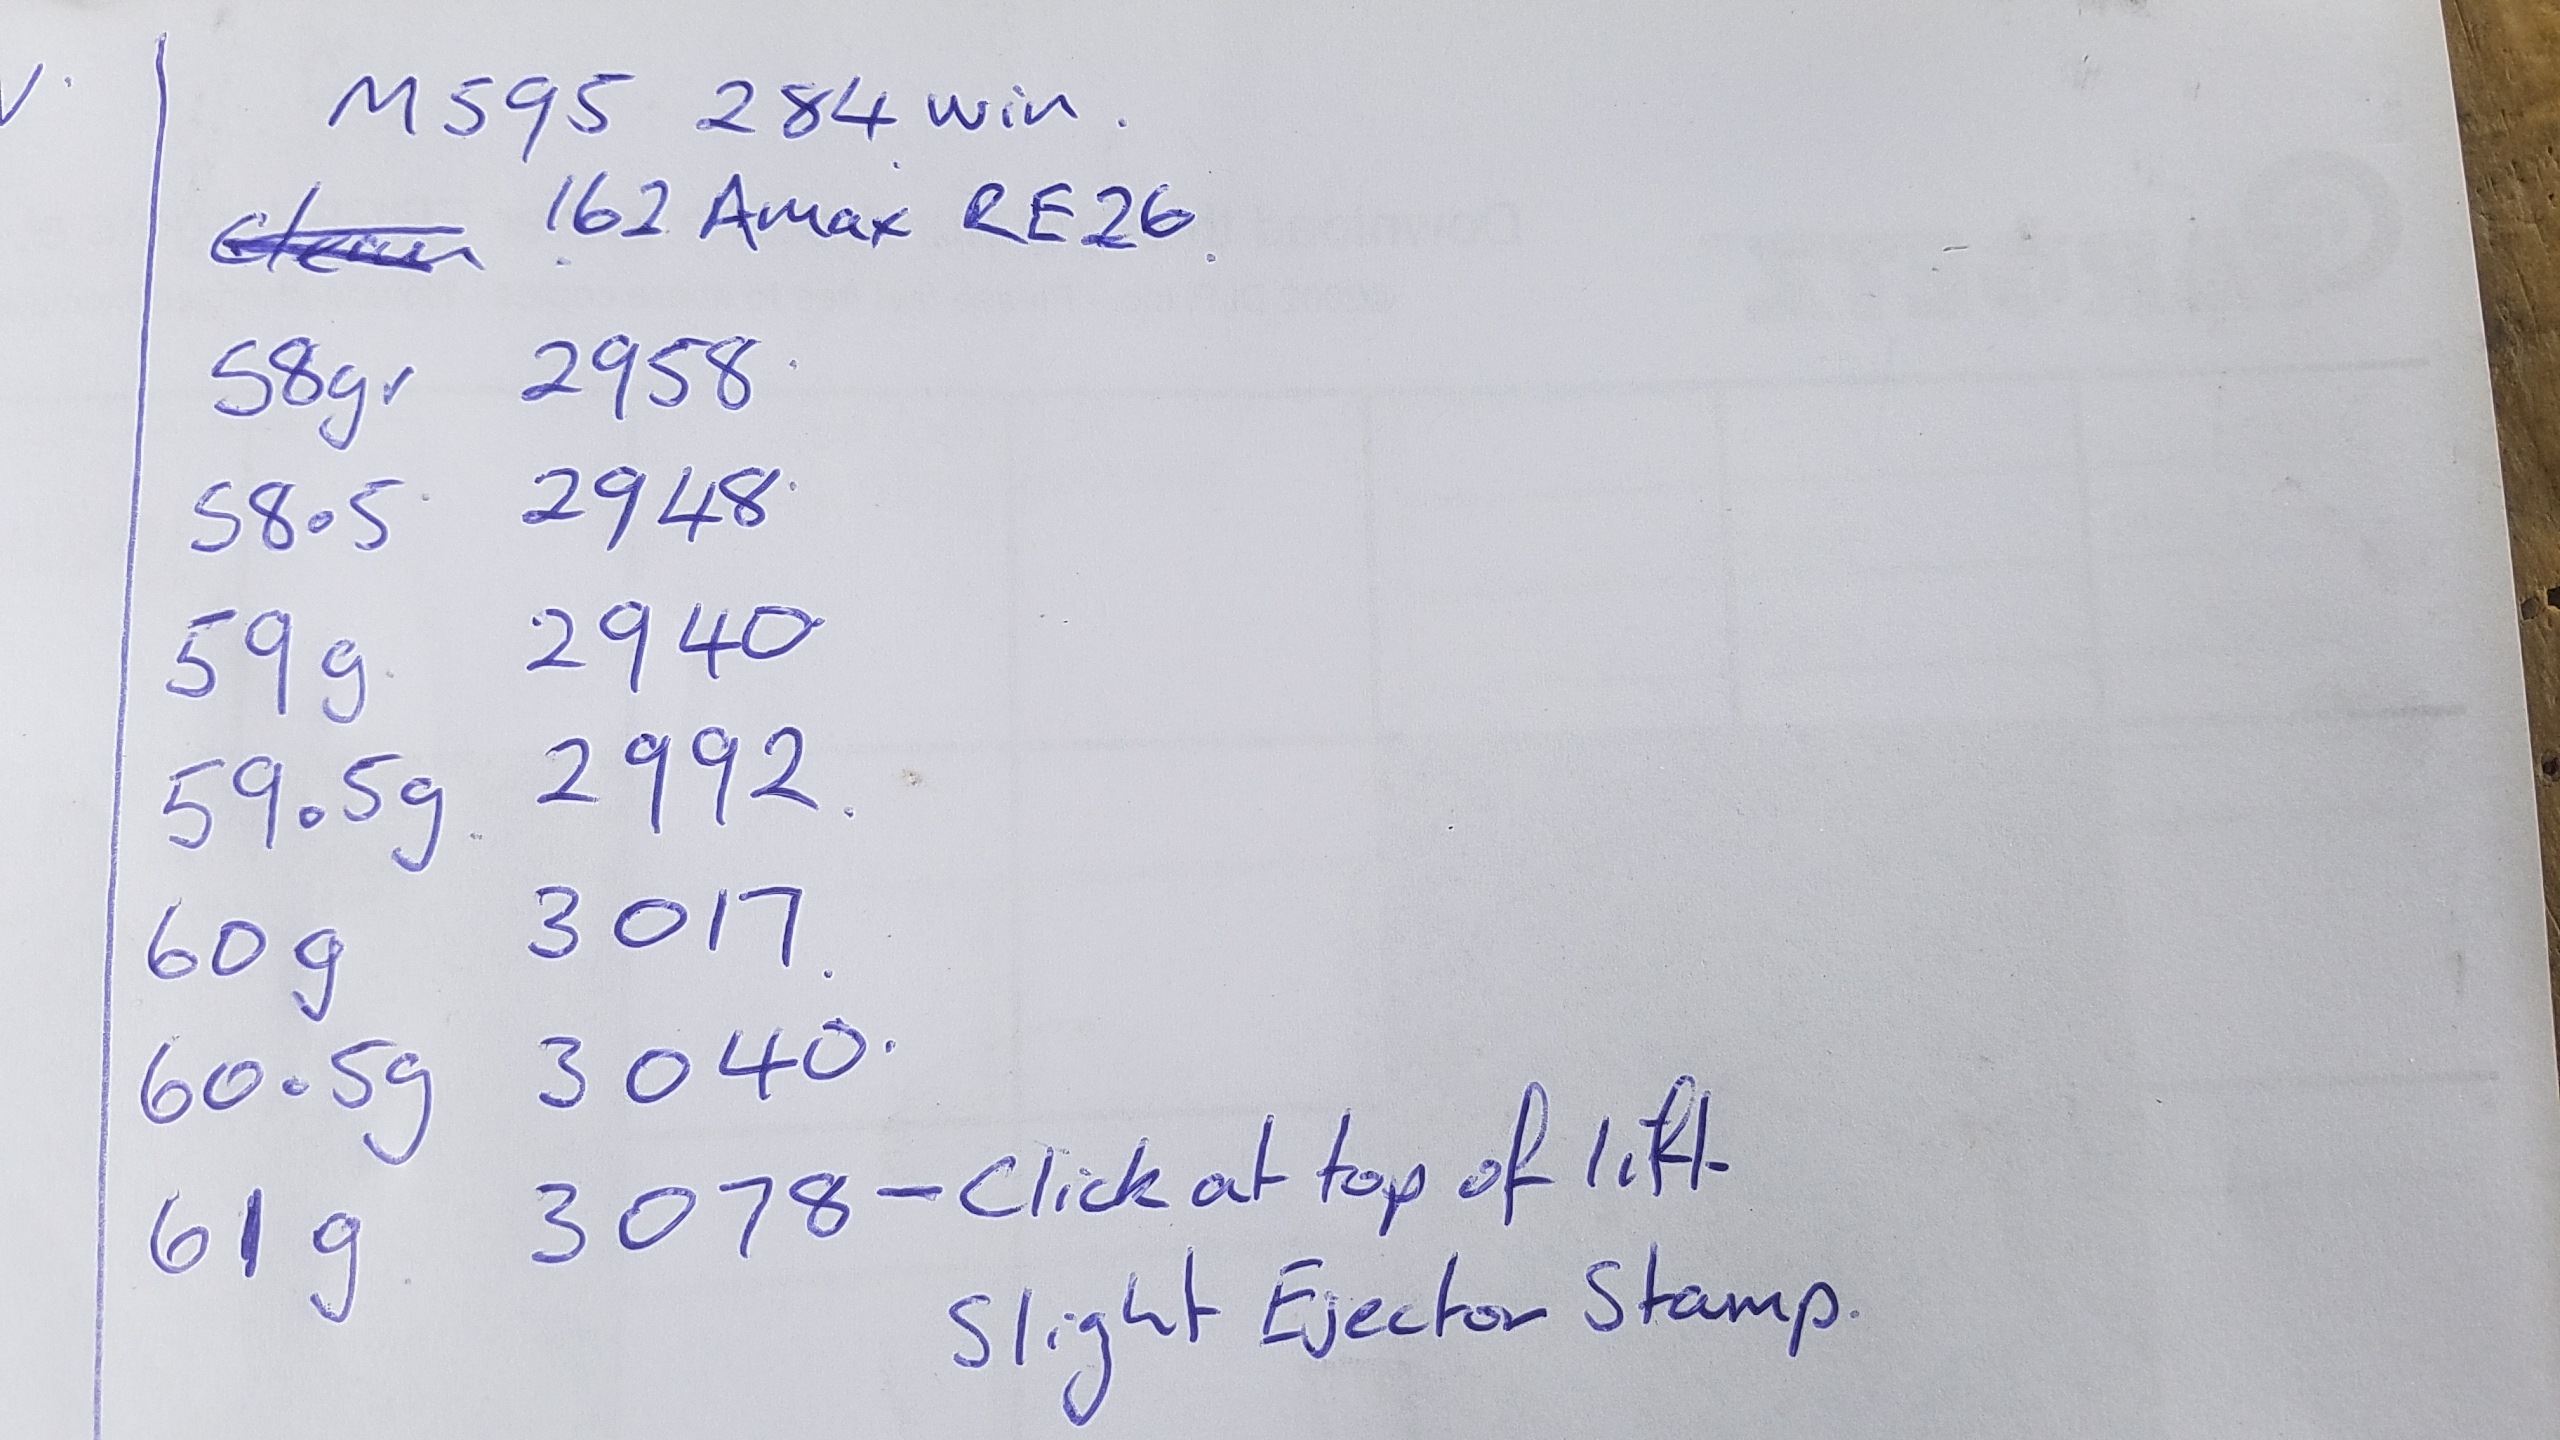 M595 284 win.
162 Amax RE26.
58gr 2958.
58.5 2948.
59g. 2940
59.5g. 2992.
60g 3017.
60.5g 3040.
61g 3078 - Click at top of lift
Slight Ejector Stamp.